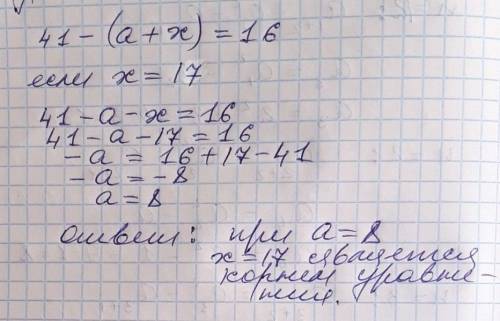 41 - (a + x) = 16
если x = 17
41 - a - x = 16
41 - a - 17 = 16
- a = 16 + 17 - 41
- a = - 8
a = 8
ответ: при a = 8
x = 17 является
корнем уравне-
ния.